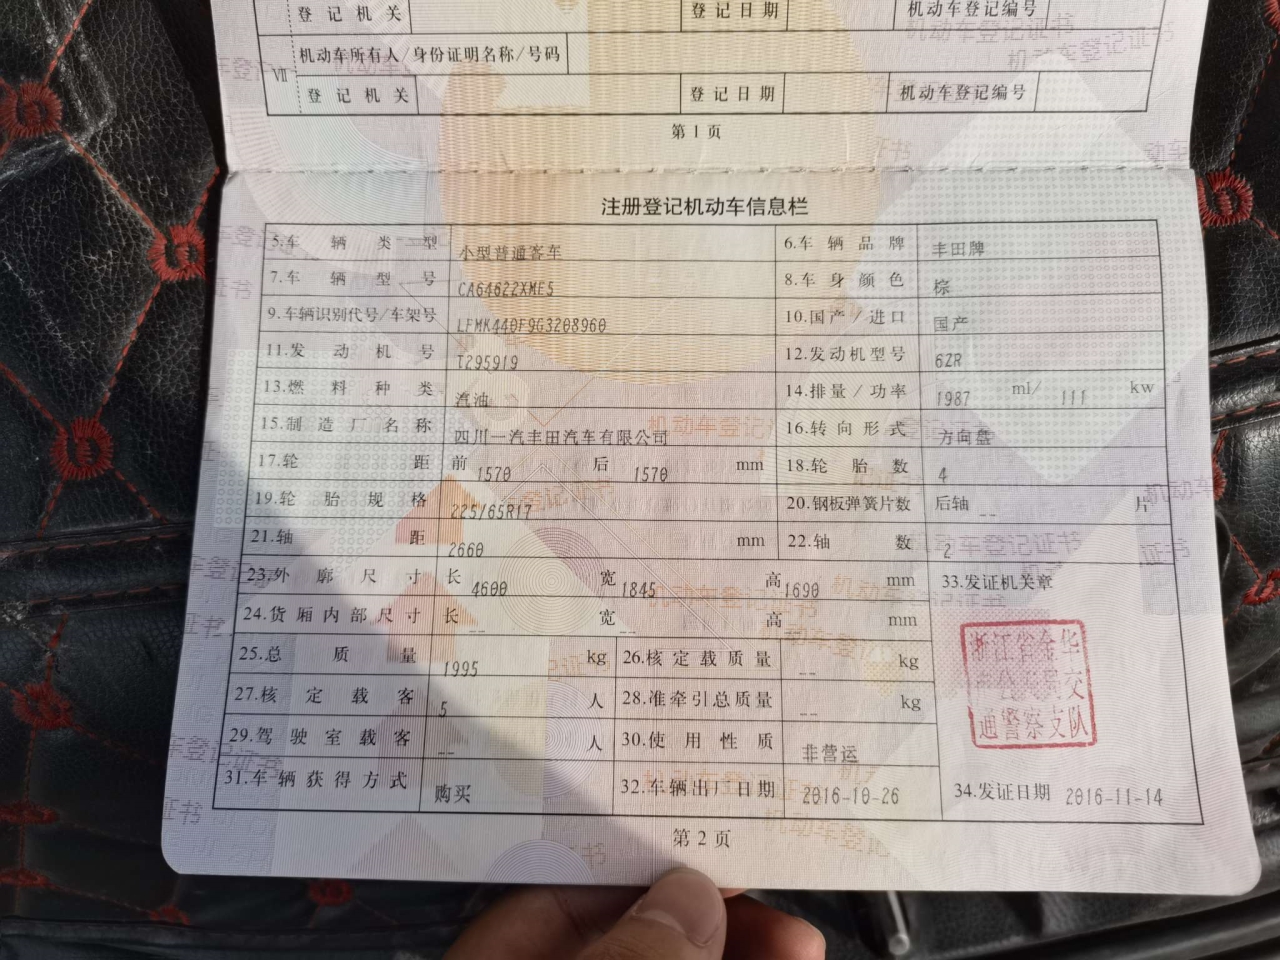 登记机关 登记日期 机动车登记编号
Ⅶ 机动车所有人/身份证明名称/号码
登记机关 登记日期 机动车登记编号
第1页
注册登记机动车信息栏
5.车辆类型 小型普通客车 6.车辆品牌 丰田牌
7.车辆型号 CA64622XME5 8.车身颜色 棕
9.车辆识别代号/车架号 LFMK440F9G3208960 10.国产/进口 国产
11.发动机号 t295919 12.发动机型号 6ZR
13.燃料种类 汽油 14.排量/功率 1987 ml/ 111 kw
15.制造厂名称 四川一汽丰田汽车有限公司 16.转向形式 方向盘
17.轮距 前 1570 后 1570 mm 18.轮胎数 4
19.轮胎规格 225/65R17 20.钢板弹簧片数 后轴 -- 片
21.轴距 2660 mm 22.轴数 2
23.外廓尺寸 长 4600 宽 1845 高 1690 mm 33.发证机关章
24.货厢内部尺寸 长 -- 宽 -- 高 mm
25.总质量 1995 kg 26.核定载质量 -- kg
浙江省金华
公安局交
通警察支队
27.核定载客 5 人 28.准牵引总质量 -- kg
29.驾驶室载客 -- 人 30.使用性质 非营运
31.车辆获得方式 购买 32.车辆出厂日期 2016-10-26 34.发证日期 2016-11-14
第2页